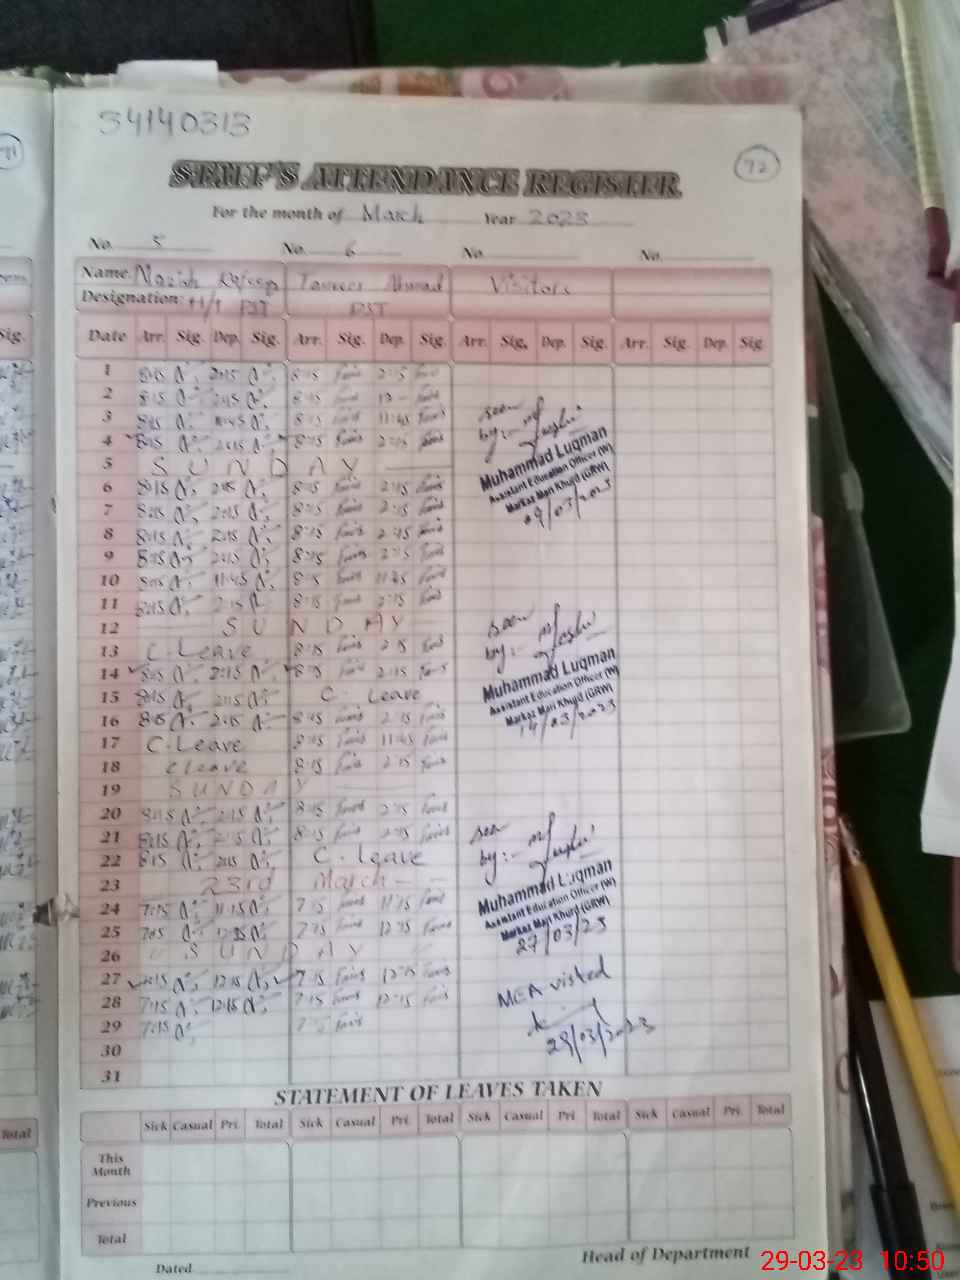 34140313
71
72
STAFF'S ATTENDANCE REGISTER
For the month of March Year 2023
No. 5 No. 6 No. No.
Name: Tanveer Ahmad Visitors
Designation: PST PST
Date Arr. Sig. Dep. Sig. Arr. Sig. Dep. Sig. Arr. Sig. Dep. Sig. Arr. Sig. Dep. Sig.
1 8:15 2:15 8:15 2:15
2 8:15 2:15 8:15
3 8:15 11:45 8:15 11:45
4 8:15 2:15 8:15 2:15
5 SUNDAY
6 8:15 2:15 8:15 2:15
7 8:15 2:15 8:15 2:15
8 8:15 2:15 8:15 2:15
9 8:15 2:15 8:15 2:15
10 8:15 11:45 8:15 11:45
11 8:15 2:15 8:15 2:15
12 SUNDAY
13 C. Leave 8:15 2:15
14 8:15 2:15 8:15 2:15
15 8:15 2:15 C. Leave
16 8:15 2:15 8:15 2:15
17 C. Leave 8:15 11:45
18 C leave 8:15 2:15
19 SUNDAY
20 8:15 2:15 8:15 2:15
21 8:15 2:15 8:15 2:15
22 8:15 2:15 C. leave
23 23rd March - -
24 7:15 11:15 7:15 11:15
25 7:15 12:15 7:15 12:15
26 SUNDAY
27 7:15 12:15 7:15 12:15
28 7:15 12:15 7:15 12:15
29 7:15 7:15
30
31
seen
by:-
Muhammad Luqman
Assistant Education Officer (W)
Markaz Mari Khurd (GRW)
09/03/2023
seen
by:-
Muhammad Luqman
Assistant Education Officer (W)
Markaz Mari Khurd (GRW)
14/03/2023
seen
by:-
Muhammad Luqman
Assistant Education Officer (W)
Markaz Mari Khurd (GRW)
27/03/23
MEA visited
29/03/2023
STATEMENT OF LEAVES TAKEN
Sick Casual Pri. Total Sick Casual Pri. Total Sick Casual Pri. Total Sick Casual Pri. Total
This Month
Previous
Total
Dated
Head of Department
Sig.
Total
29-03-23 10:50